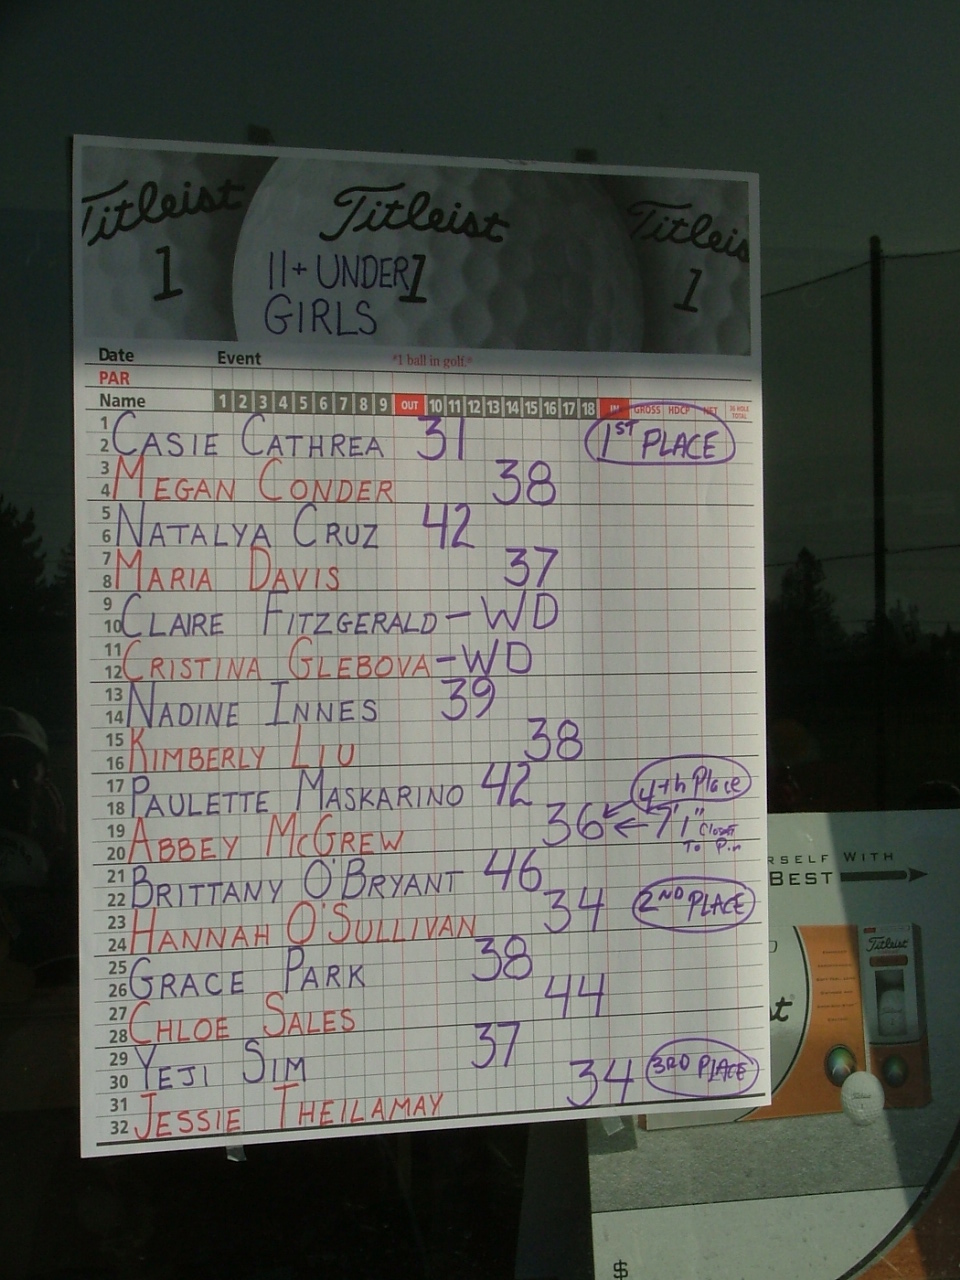 Titleist Titleist Titleis
1 1 1
11+ UNDER
GIRLS
Date Event "1 ball in golf."
PAR
Name 1 2 3 4 5 6 7 8 9 OUT 10 11 12 13 14 15 16 17 18 IN GROSS HDCP NET 36 HOLE TOTAL
1
2 CASIE CATHREA 31 1ST PLACE
3
4 MEGAN CONDER 38
5
6 NATALYA CRUZ 42
7
8 MARIA DAVIS 37
9
10 CLAIRE FITZGERALD - WD
11
12 CRISTINA GLEBOVA - WD
13
14 NADINE INNES 39
15
16 KIMBERLY LIU 38
17
18 PAULETTE MASKARINO 42 4th Place
19
20 ABBEY MCGREW 36 ← 7'1" Closest To Pin
21
22 BRITTANY O'BRYANT 46
23
24 HANNAH O'SULLIVAN 34 2ND PLACE
25
26 GRACE PARK 38
27
28 CHLOE SALES 44
29
30 YEJI SIM 37
31
32 JESSIE THEILAMAY 34 3RD PLACE
RSELF WITH
BEST
Titleist
st
$